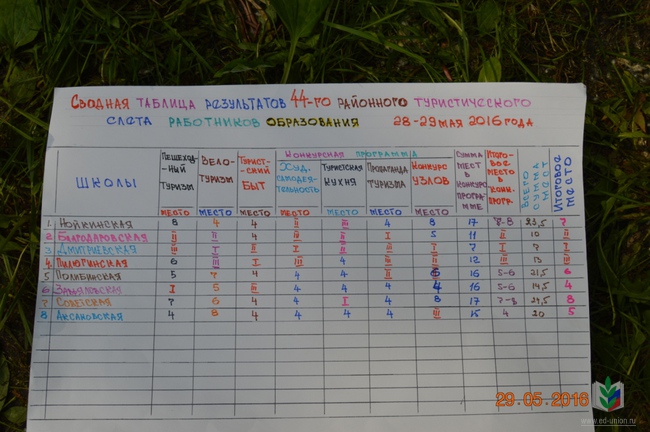 Сводная таблица результатов 44-го районного туристического
слета работников образования 28-29 мая 2016 года
Школы
Пешеход-ный туризм
Вело-туризм
Турист-ский быт
Конкурсная программа
Худ. самодея-тельность
Туристская кухня
Пропаганда туризма
Конкурс узлов
Сумма мест в конкурс. программе
Итого-вое место в конк. прогр.
Всего сумма мест
Итоговое место
место место место место место место место
1. Нойкинская 8 4 4 II III 4 8 17 7-8 23,5 7
2 Благодаровская II II II II I 5 11 II 10 II
3 Дмитриевская I I I I
4 Пилюгинская 6 III I III 4 II III 12 III 13 III
5 Полибинская 5 7 4 4 4 16 5-6 21,5 6
6 I 5 III 4 4 4 4 16 5-6 14,5 4
7 Советская 7 6 4 4 I 4 8 17 7-8 24,5 8
8 Аксаковская 4 8 4 4 4 4 III 15 4 20 5
29.05.2016
www.ed-union.ru